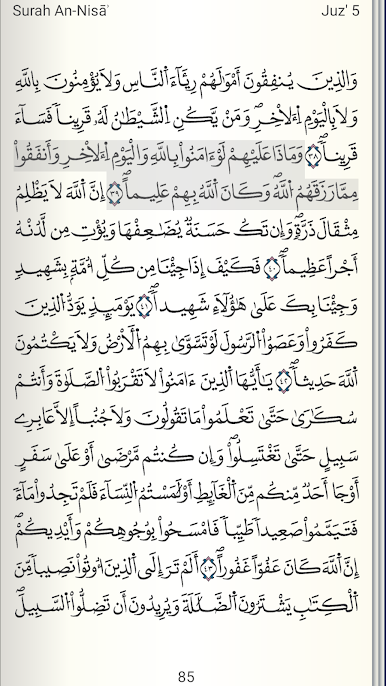 Surah An-Nisāʾ Juz' 5
وَالَّذِينَ يُنفِقُونَ أَمْوَالَهُمْ رِئَاءَ النَّاسِ وَلَا يُؤْمِنُونَ بِاللَّهِ
وَلَا بِالْيَوْمِ الْآخِرِ وَمَن يَكُنِ الشَّيْطَانُ لَهُ قَرِينًا فَسَاءَ
قَرِينًا ٣٨ وَمَاذَا عَلَيْهِمْ لَوْ ءَامَنُوا بِاللَّهِ وَالْيَوْمِ الْآخِرِ وَأَنفَقُوا
مِمَّا رَزَقَهُمُ اللَّهُ وَكَانَ اللَّهُ بِهِمْ عَلِيمًا ٣٩ إِنَّ اللَّهَ لَا يَظْلِمُ
مِثْقَالَ ذَرَّةٍ وَإِن تَكُ حَسَنَةً يُضَٰعِفْهَا وَيُؤْتِ مِن لَّدُنْهُ
أَجْرًا عَظِيمًا ٤٠ فَكَيْفَ إِذَا جِئْنَا مِن كُلِّ أُمَّةٍ بِشَهِيدٍ
وَجِئْنَا بِكَ عَلَىٰ هَٰؤُلَاءِ شَهِيدًا ٤١ يَوْمَئِذٍ يَوَدُّ الَّذِينَ
كَفَرُوا وَعَصَوُا الرَّسُولَ لَوْ تُسَوَّىٰ بِهِمُ الْأَرْضُ وَلَا يَكْتُمُونَ
اللَّهَ حَدِيثًا ٤٢ يَٰأَيُّهَا الَّذِينَ ءَامَنُوا لَا تَقْرَبُوا الصَّلَوٰةَ وَأَنتُمْ
سُكَٰرَىٰ حَتَّىٰ تَعْلَمُوا مَا تَقُولُونَ وَلَا جُنُبًا إِلَّا عَابِرِي
سَبِيلٍ حَتَّىٰ تَغْتَسِلُوا وَإِن كُنتُم مَّرْضَىٰ أَوْ عَلَىٰ سَفَرٍ
أَوْ جَاءَ أَحَدٌ مِّنكُم مِّنَ الْغَائِطِ أَوْ لَٰمَسْتُمُ النِّسَاءَ فَلَمْ تَجِدُوا مَاءً
فَتَيَمَّمُوا صَعِيدًا طَيِّبًا فَامْسَحُوا بِوُجُوهِكُمْ وَأَيْدِيكُمْ
إِنَّ اللَّهَ كَانَ عَفُوًّا غَفُورًا ٤٣ أَلَمْ تَرَ إِلَى الَّذِينَ أُوتُوا نَصِيبًا مِّنَ
الْكِتَٰبِ يَشْتَرُونَ الضَّلَٰلَةَ وَيُرِيدُونَ أَن تَضِلُّوا السَّبِيلَ
85